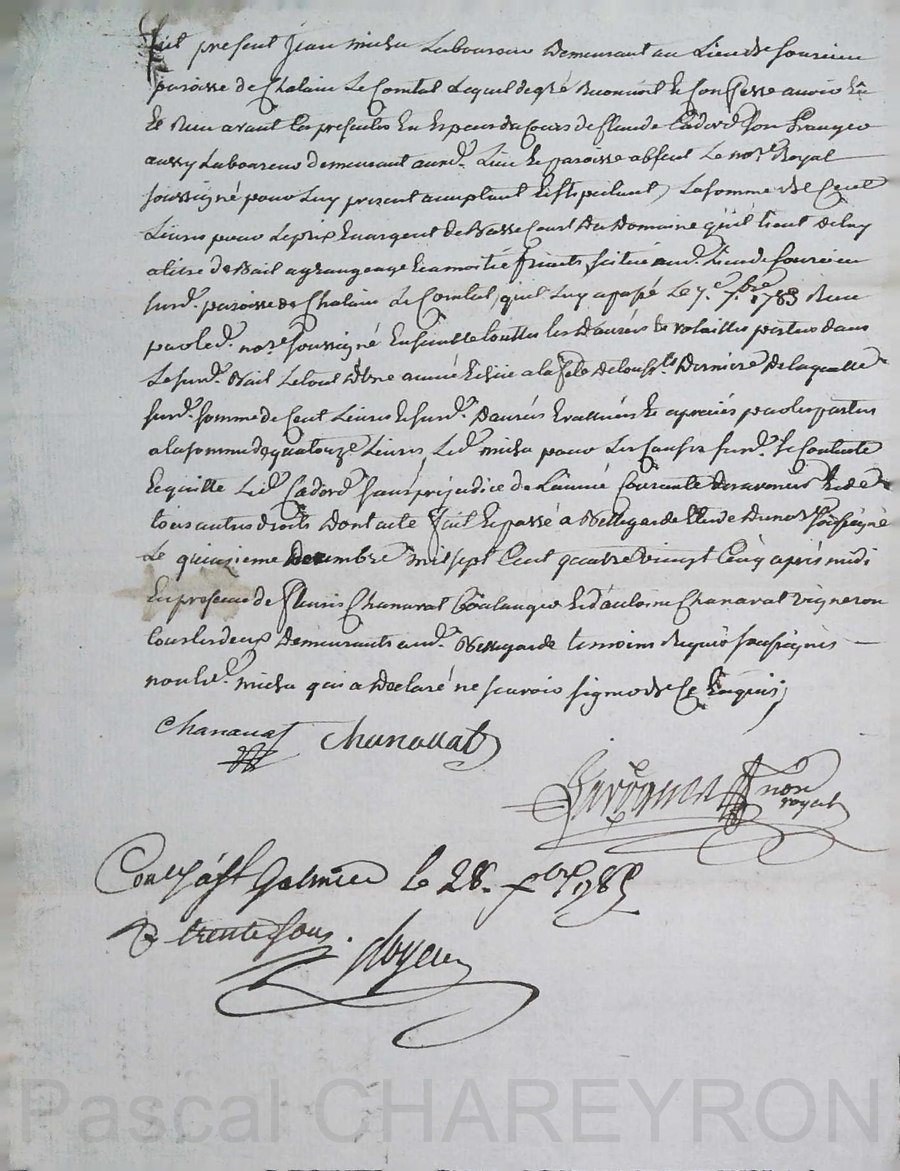 fut présent Jean micha Laboureur Demeurant au Lieu de
paroisse de Chalain Le Comtal Lequel de gré a Reconnû et Confesse avoir Eû
Et Reçu avant les presentes En Especes du Cours de Claude Cadord son Granger
aussy Laboureur demeurant aud. Lieu et paroisse absent Le nore Royal
soussigné pour Luy present acceptant et stipulant, La somme de Cent
Livres pour Le prix En argent de Basse Court Du Domaine qu'il tient de luy
a titre de Bail a grangeage a moitié fruits, scitué aud. Lieu de
surd. paroisse de Chalain Le Comtal, qu'il Luy a passé Le 7e 7bre 1783 Reçu
par led. nore soussigné Ensemble touttes les Danrées Et volailles portées dans
Le surd. Bail Le tout D'une année Echüe a la fete de touss.ts Derniere De laquelle
surd. somme de Cent Livres et surd. Danrées Evalluées Et apreciés par les parties
a la somme de quatorze Livres, Led. micha pour Les Causes surd. se Contente
Et quitte Led. Cadord sans prejudice de L'année Courante Et de
tous autres droits Dont acte fait Et passé a Bellegarde Etude Du nore soussigné
Le quinzieme Decembre mil sept Cent quatre vingt Cinq après midi
En presence de Fleuris Chanavat Boulanger Et D'antoine Chanavat vigneron
tous les deux Demeurants aud. Bellegarde temoins Requis soussignés
non led. micha qui a Declaré ne scavoir signer de Ce Enquis;
Chanavat Chanavat
nore
royal
Conlé à St Galmier le 28. xbre 1785
R trente sous.
Pascal CHAREYRON